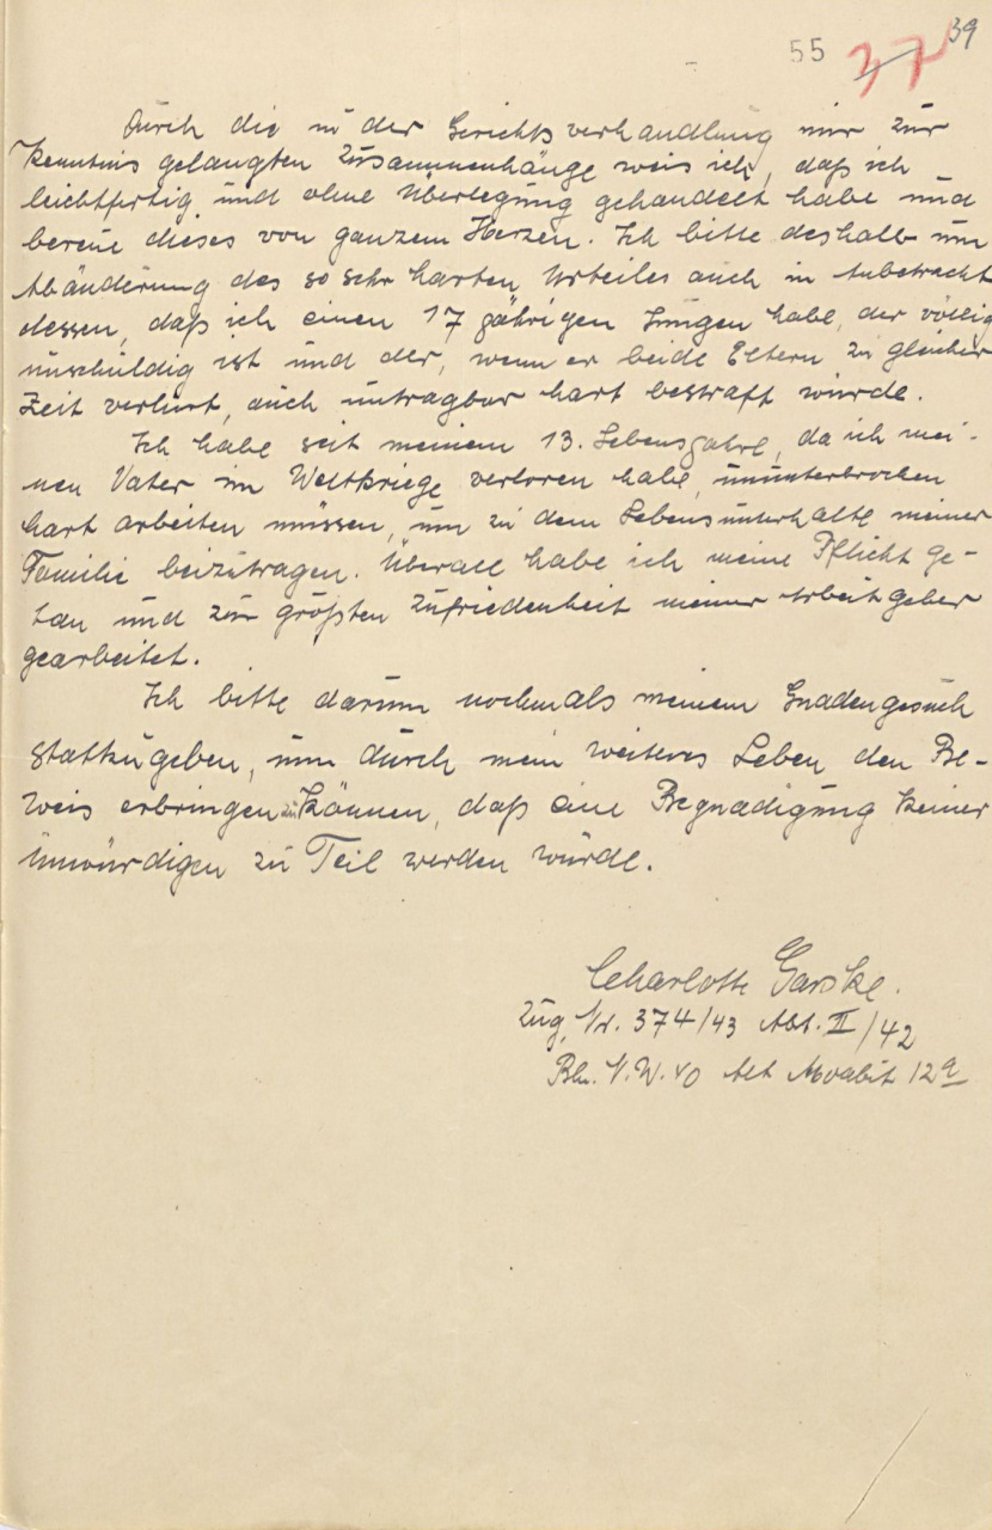 55 37 39
Durch die in der Gerichtsverhandlung mir zur
Kenntnis gelangten Zusammenhänge weis ich, daß ich
leichtfertig und ohne Überlegung gehandelt habe und
bereue dieses von ganzem Herzen. Ich bitte deshalb um
Abänderung des so sehr harten Urteiles auch in Anbetracht
dessen, daß ich einen 17 jährigen Jungen habe, der völlig
unschuldig ist und der, wenn er beide Eltern zu gleicher
Zeit verliert, auch untragbar hart bestraft würde.
Ich habe seit meinem 13. Lebensjahre, da ich mei-
nen Vater im Weltkriege verloren habe, ununterbrochen
hart arbeiten müssen, um zu dem Lebensunterhalte meiner
Familie beizutragen. Überall habe ich meine Pflicht ge-
tan und zur größten Zufriedenheit meiner Arbeitgeber
gearbeitet.
Ich bitte darum nochmals meinem Gnadengesuch
stattzugeben, um durch mein weiteres Leben den Be-
weis erbringen zu können, daß eine Begnadigung keiner
Unwürdigen zu Teil werden würde.
Charlotte Garske.
Zug. Nr. 374/43 Abt. II/42
Bln. N.W. 40 Alt Moabit 12a